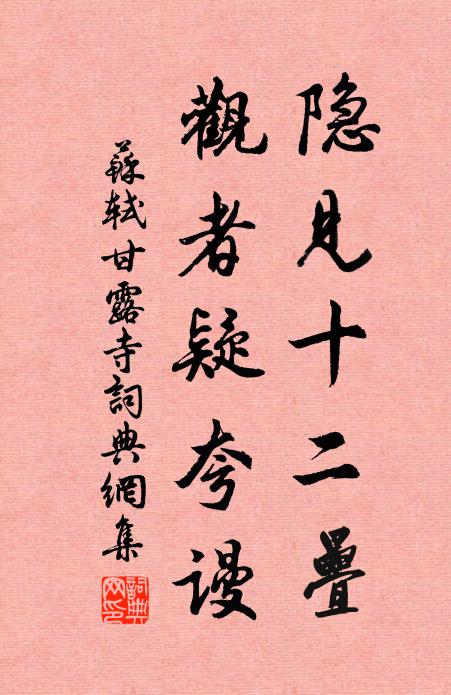 隐見十二疊
觀者疑夸谩
蘇軾甘露寺詞典網集
詞典网印